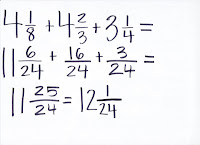 4 1/8 + 4 2/3 + 3 1/4 =
11 6/24 + 16/24 + 3/24 =
11 25/24 = 12 1/24